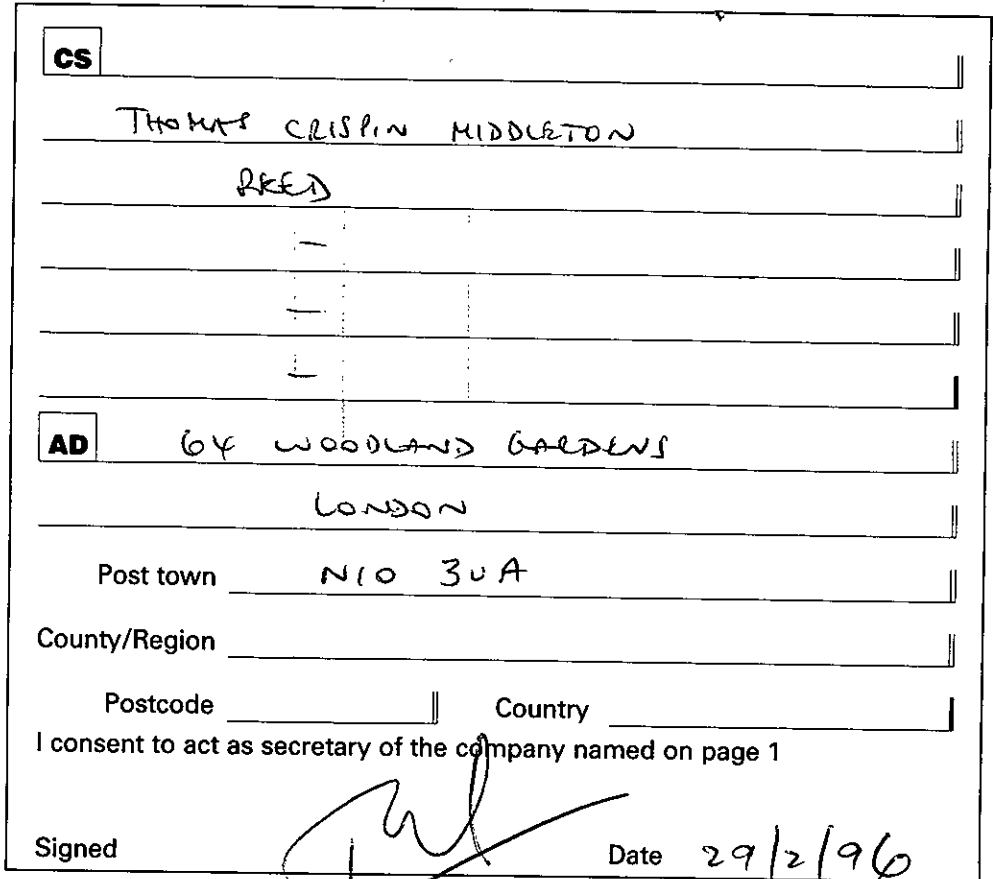 CS
THOMAS CRISPIN MIDDLETON
REED
–
–
–
AD 64 WOODLAND GARDENS
LONDON
Post town N10 3UA
County/Region
Postcode Country
I consent to act as secretary of the company named on page 1
Signed Date 29/2/96